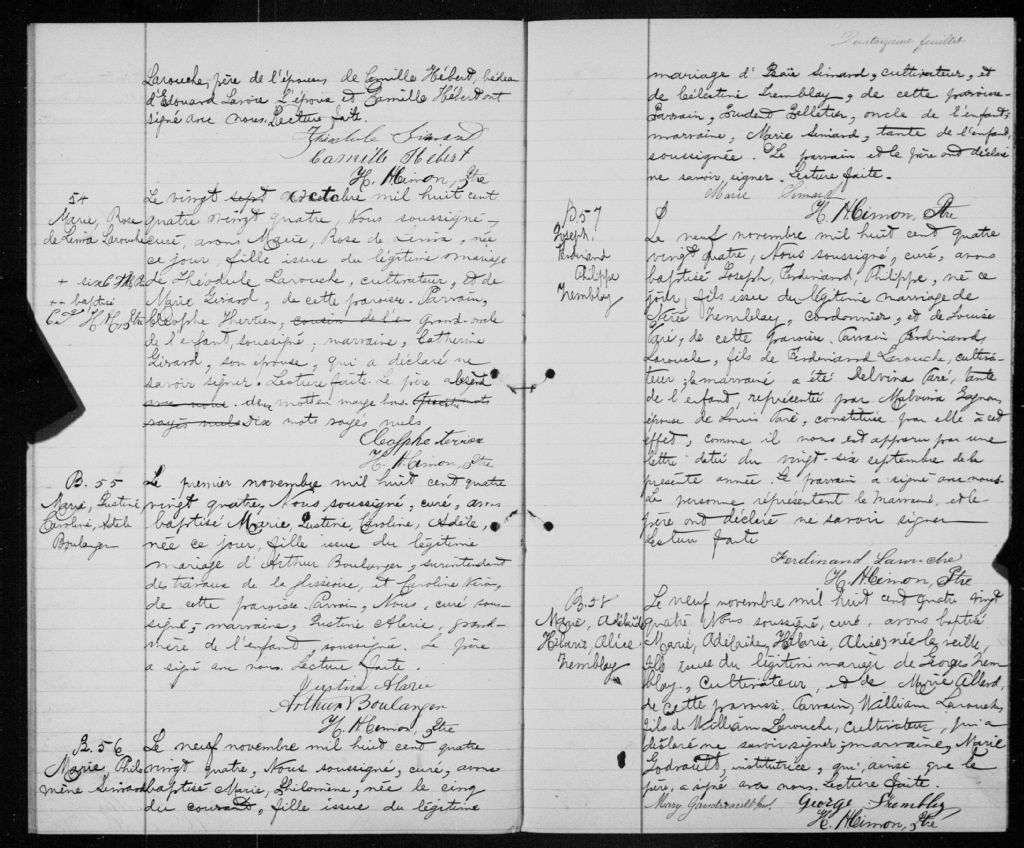 Larouche, père de l'épouse, de Camille Hébert, bedeau
d'Edouard Lavoie. L'époux et Camille Hébert ont
signé avec nous. Lecture faite.
Théodule Simard
Camille Hébert
H. Cimon, Ptre
54
Marie, Rose
de Lima Larouche
+ six
++ baptisé
C.T. H. Cimon, Ptre
Le vingt sept octobre mil huit cent
quatre vingt quatre, Nous soussigné,
curé, avons Marie, Rose de Lima, née
ce jour, fille issue du légitime mariage
de Théodule Larouche, cultivateur, et de
Marie Girard, de cette paroisse. Parrain,
Cléophe Therrien, cousin de l'e grand-oncle
de l'enfant, soussigné; marraine, Catherine
Girard, son épouse, qui a déclaré ne
savoir signer. Lecture faite. Le père absent
avec nous. deux mots en marge bons
rayés nuls Dix mots rayés nuls
Cleophe terien
H. Cimon, Ptre
B. 55
Marie, Justine
Caroline, Adèle
Boulanger
Le premier novembre mil huit cent quatre
vingt quatre, Nous soussigné, curé, avons
baptisé Marie, Justine, Caroline, Adèle,
née ce jour, fille issue du légitime
mariage d'Arthur Boulanger, surintendant
des travaux de la glissoire, et Caroline
de cette paroisse. Parrain, Nous, curé sous-
signé; marraine, Justine Alarie, grand-
mère de l'enfant, soussignée. Le père
a signé avec nous. Lecture faite.
Justine Alarie
Arthur Boulanger
H. Cimon, Ptre
B. 56
Marie, Philo
mène Simard
Le neuf novembre mil huit cent quatre
vingt quatre, Nous soussigné, curé, avons
baptisé Marie, Philomène, née le cinq
du courant, fille issue du légitime
Quatorzième feuillet
mariage d'Isaïe Simard, cultivateur, et
de Célestine Tremblay, de cette paroisse.
Parrain, Pelletier, oncle de l'enfant,
marraine, Marie Simard, tante de l'enfant,
soussignée. Le parrain et le père ont déclaré
ne savoir signer. Lecture faite.
Marie Simard
H. Cimon, Ptre
B. 57
Joseph,
Ferdinand
Philippe
Tremblay
Le neuf novembre mil huit cent quatre
vingt quatre, Nous soussigné, curé, avons
baptisé Joseph, Ferdinand, Philippe, né ce
jour, fils issu du légitime mariage de
Tremblay, cordonnier, et de Louise
Paré, de cette paroisse. Parrain Ferdinand
Larouche, fils de Ferdinand Larouche, cultiva-
teur, la marraine a été Delvina Paré, tante
de l'enfant, représenté par Malvina Gagnon,
épouse de Louis Paré, constituée par elle à cet
effet, comme il nous est apparu par une
lettre datée du vingt-six septembre de la
présente année. Le parrain a signé avec nous
La personne représentant la marraine, et le
père ont déclaré ne savoir signer
Lecture faite
Ferdinand Larouche
H. Cimon, Ptre
B. 58
Marie, Adélaïde
Hilarie, Alice
Tremblay
Le neuf novembre mil huit cent quatre vingt
quatre Nous soussigné, curé, avons baptisé
Marie, Adélaïde, Hilarie, Alice, née la veille,
fille issue du légitime mariage de Georges Trem
blay, cultivateur, et de Marie Allard,
de cette paroisse, Parrain, William Larouche
fils de William Larouche, cultivateur, qui a
déclaré ne savoir signer; marraine, Marie
Godrault, institutrice, qui, ainsi que le
père, a signé avec nous. Lecture faite.
Mary Gaudreault
George Tremblay
H. Cimon, Ptre